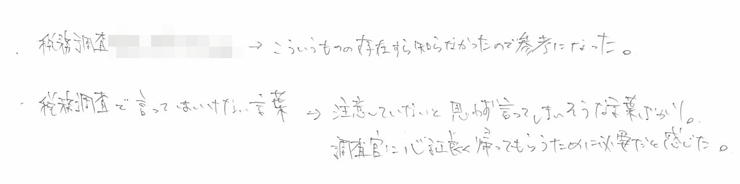 ・税務調査 → こういうものの存在すら知らなかったので参考になった。
・税務調査で言ってはいけない言葉 → 注意していないと思わず言ってしまいそうな言葉ばかり。
調査官に心証良く帰ってもらうために必要だと感じた。